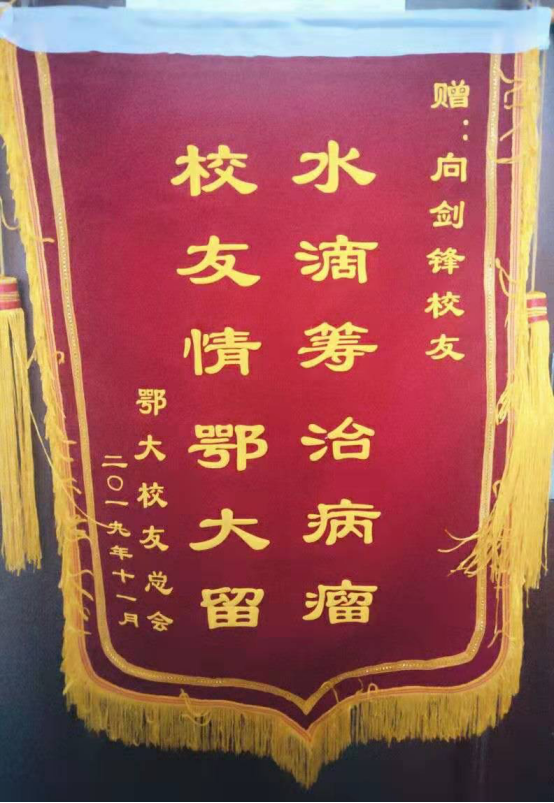 赠：向剑锋校友
水滴筹治病瘤
校友情鄂大留
鄂大校友总会
二〇一九年十一月